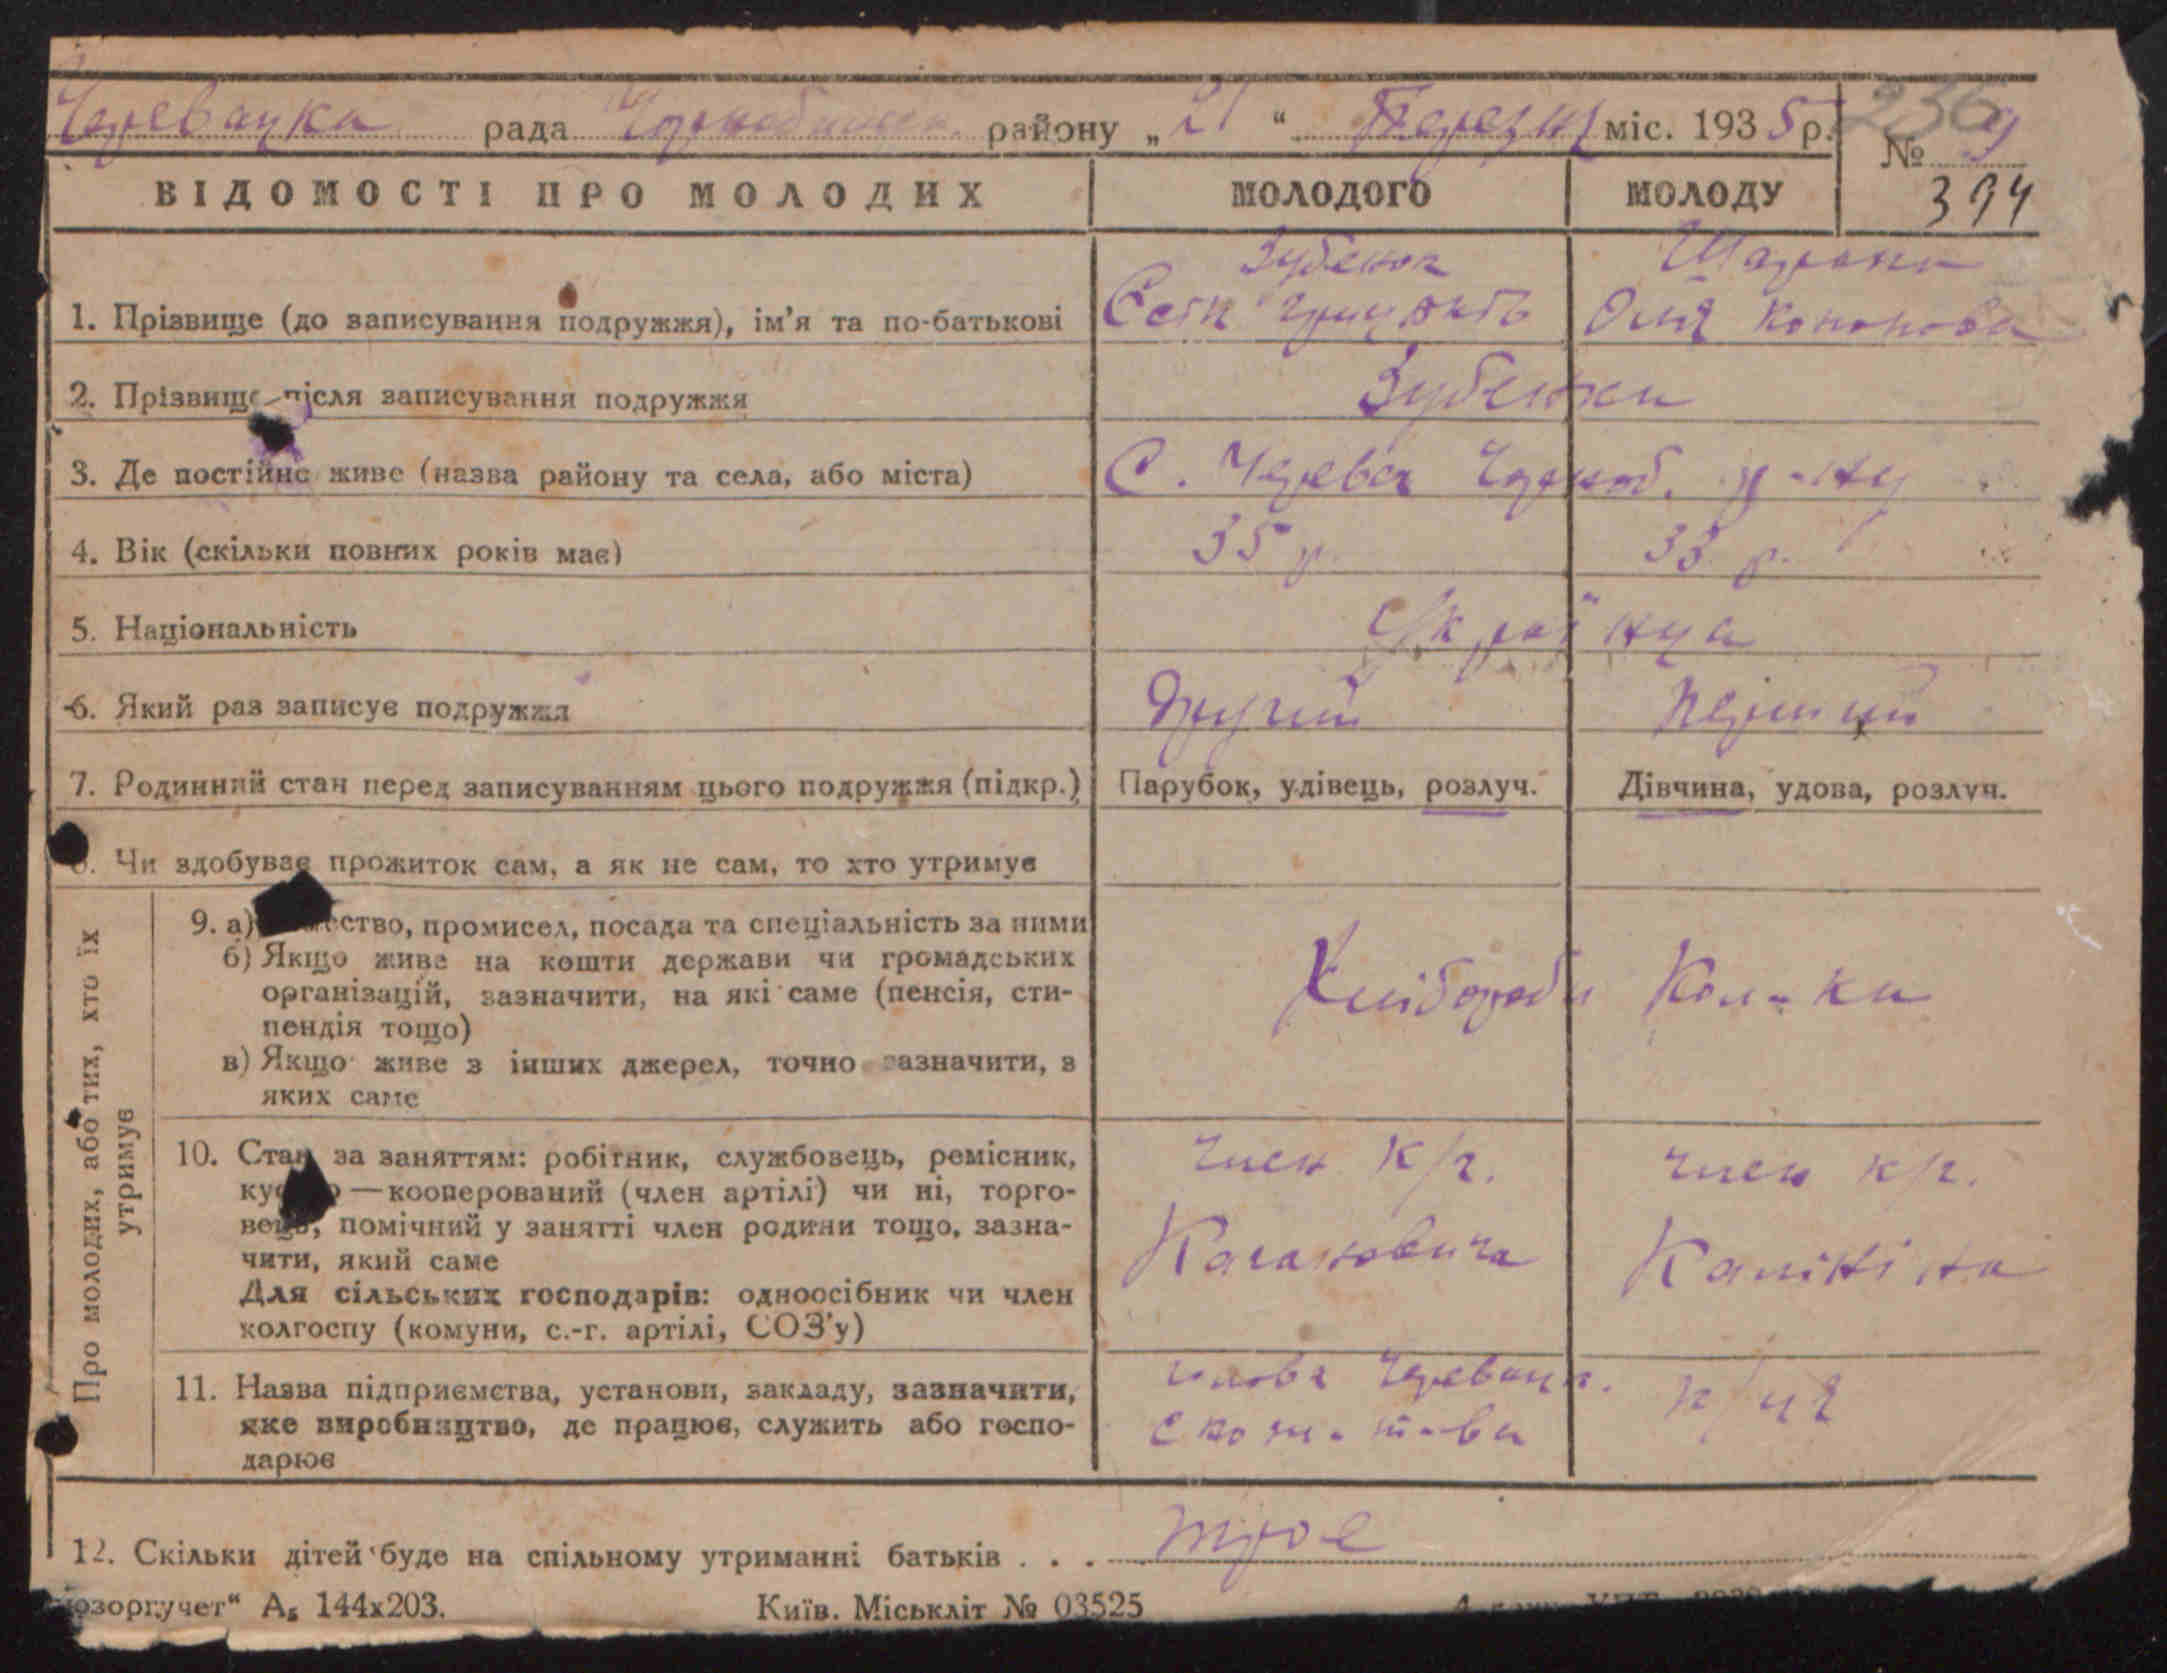 Черевацка рада Чорнобильськ. району „ 21 “ Березня міс. 1935 р. № 9
236
394
ВІДОМОСТІ ПРО МОЛОДИХ МОЛОДОГО МОЛОДУ
Зубенок
1. Прізвище (до записування подружжя), ім'я та по-батькові Олія Кононова
2. Прізвище після записування подружжя Зубенки
3. Де постійно живе (назва району та села, або міста) С. Черевач Чорноб. р-ну
4. Вік (скільки повних років має) 35 р. 33 р.
5. Національність Українца
6. Який раз записує подружжя Другий Перший
7. Родинний стан перед записуванням цього подружжя (підкр.) Парубок, удівець, розлуч. Дівчина, удова, розлуч.
8. Чи здобуває прожиток сам, а як не сам, то хто утримує
Про молодих, або тих, хто їх утримує
9. а) ство, промисел, посада та спеціальність за ними
б) Якщо живе на кошти держави чи громадських
організацій, зазначити, на які саме (пенсія, сти-
пендія тощо)
Хлібороби Кол-ки
в) Якщо живе з інших джерел, точно зазначити, з
яких саме
10. Стан за заняттям: робітник, службовець, ремісник, член к/г. член к/г.
кустар — кооперований (член артілі) чи ні, торго-
вець, помічний у занятті член родини тощо, зазна-
чити, який саме Кагановича Калініна
Для сільських господарів: одноосібник чи член
колгоспу (комуни, с.-г. артілі, СОЗ'у)
11. Назва підприємства, установи, закладу, зазначити, голова Черевацьк.
яке виробництво, де працює, служить або госпо- Спож. т-ва
дарює
12. Скільки дітей буде на спільному утриманні батьків . . . троє
озоргучет“ А₅ 144х203. Київ. Міськліт № 03525